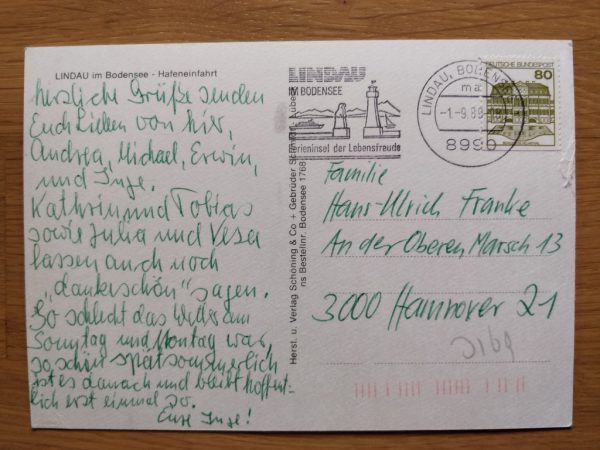 LINDAU im Bodensee - Hafeneinfahrt
herzliche Grüße senden
Euch Lieben von hier,
Andrea, Michael, Erwin,
und Inge.
Kathrin und Tobias
sowie Julia und Vesa
lassen auch noch
„dankeschön" sagen.
So schlecht das Wetter am
Sonntag und Montag war,
so schön spätsommerlich
ist es danach und bleibt hoffent-
lich erst einmal so.
Eure Inge!
Herst. u. Verlag Schöning & Co + Gebrüder Schmidt, Lübeck
Bestellnr. Bodensee 1768
LINDAU
IM BODENSEE
Ferieninsel der Lebensfreude
LINDAU, BODENSEE
ma
-1-9.89
8990
DEUTSCHE BUNDESPOST
80
Familie
Hans-Ulrich Franke
An der Oberen Marsch 13
3000 Hannover 21